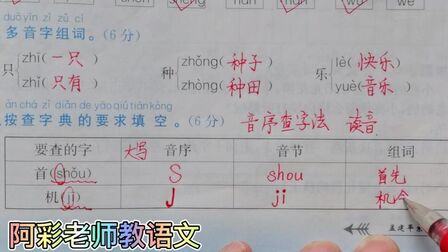 duō yīn zì zǔ cí
多音字组词。(6分)
只 zhī(一只) zhǐ(只有)
种 zhǒng(种子) zhòng(种田)
乐 lè(快乐) yuè(音乐)
àn chá zì diǎn de yāo qiú tián kòng
按查字典的要求填空。(6分) 音序查字法 读音
要查的字 大写 音序 音节 组词
首(shǒu) S shou 首先
机(jī) J jī 机会
阿彩老师教语文
孟建平系